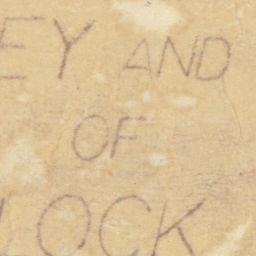 EY AND
OF
LOCK